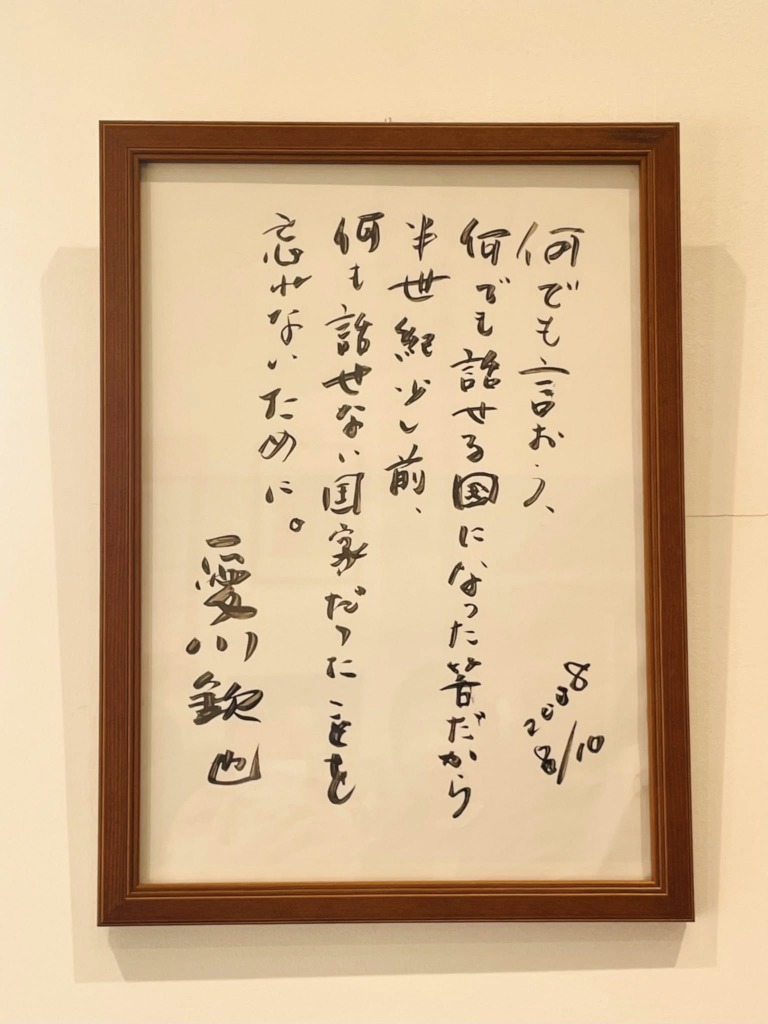 何でも言おう、
何でも話せる国になった筈だから
半世紀少し前、
何も話せない国家だったことを
忘れないために。
愛川欽也
2008
8/10